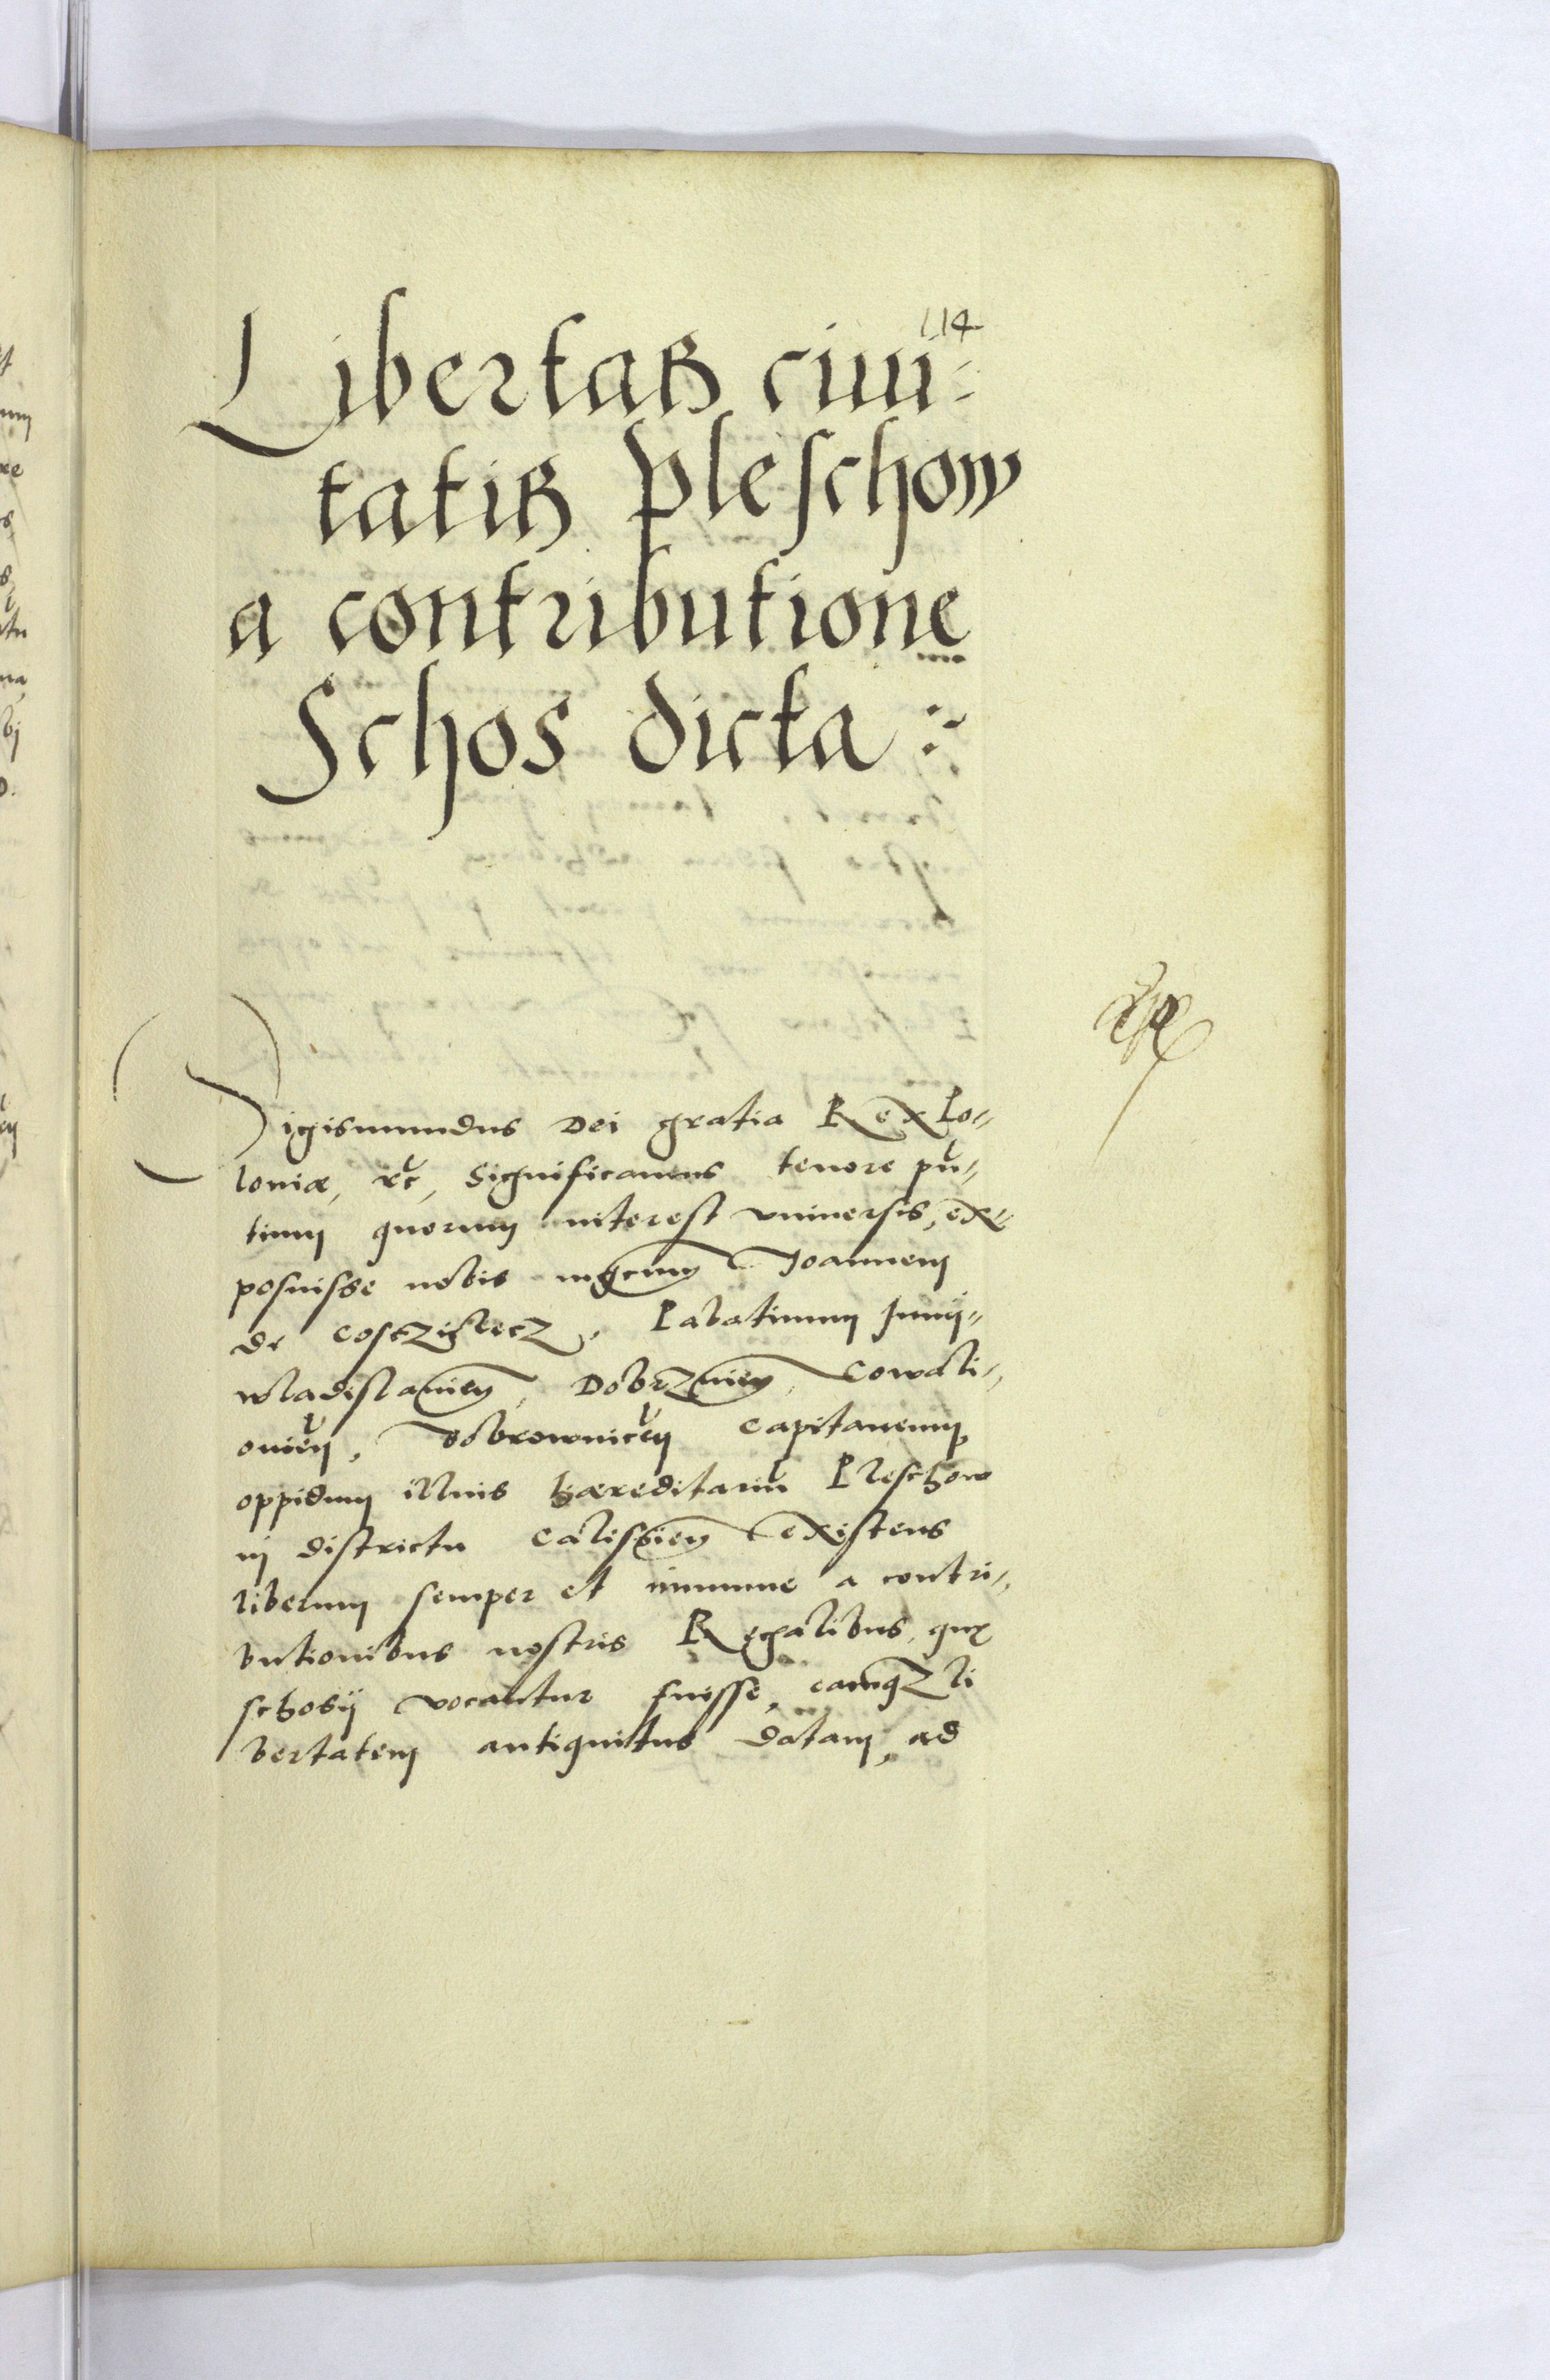 114
Libertas ciui-
tatis Pleschow
a contributione
Schos dicta :~
Sigismundus Dei gratia Rex Po=
loniæ, etc, Significamus tenore pñ=
tium quorum interest vniuersis, ex=
posuisse nobis mgcum Joannem
de Cosczieletz, Palatinum Juni=
wladislauien, Dobrzinien, Cowali=
ouien, Bobrownicen Capitaneum,
oppidum illius hæreditariũ Pleschow
in districtu Calissien existens
liberum semper et immune a contri=
butionibus nostris Regalibus, quæ
schosy vocantur fuisse, eamqz li
bertatem antiquitus datam, ad